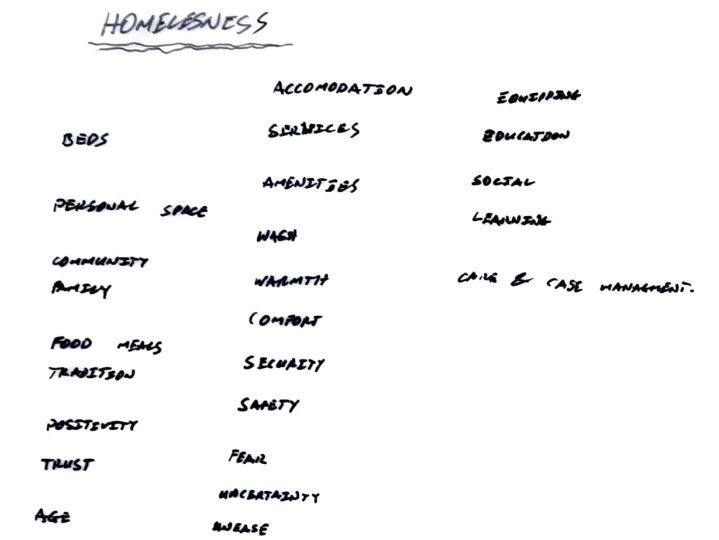 HOMELESNESS
BEDS
PERSONAL SPACE
COMMUNITY
FAMILY
FOOD MEALS
TRADITION
POSITIVITY
TRUST
AGE
ACCOMODATION
SERVICES
AMENITIES
WASH
WARMTH
COMFORT
SECURITY
SAFETY
FEAR
UNCERTAINTY
UNEASE
EQUIPPING
EDUCATION
SOCIAL
LEARNING
CARE & CASE MANAGMENT.